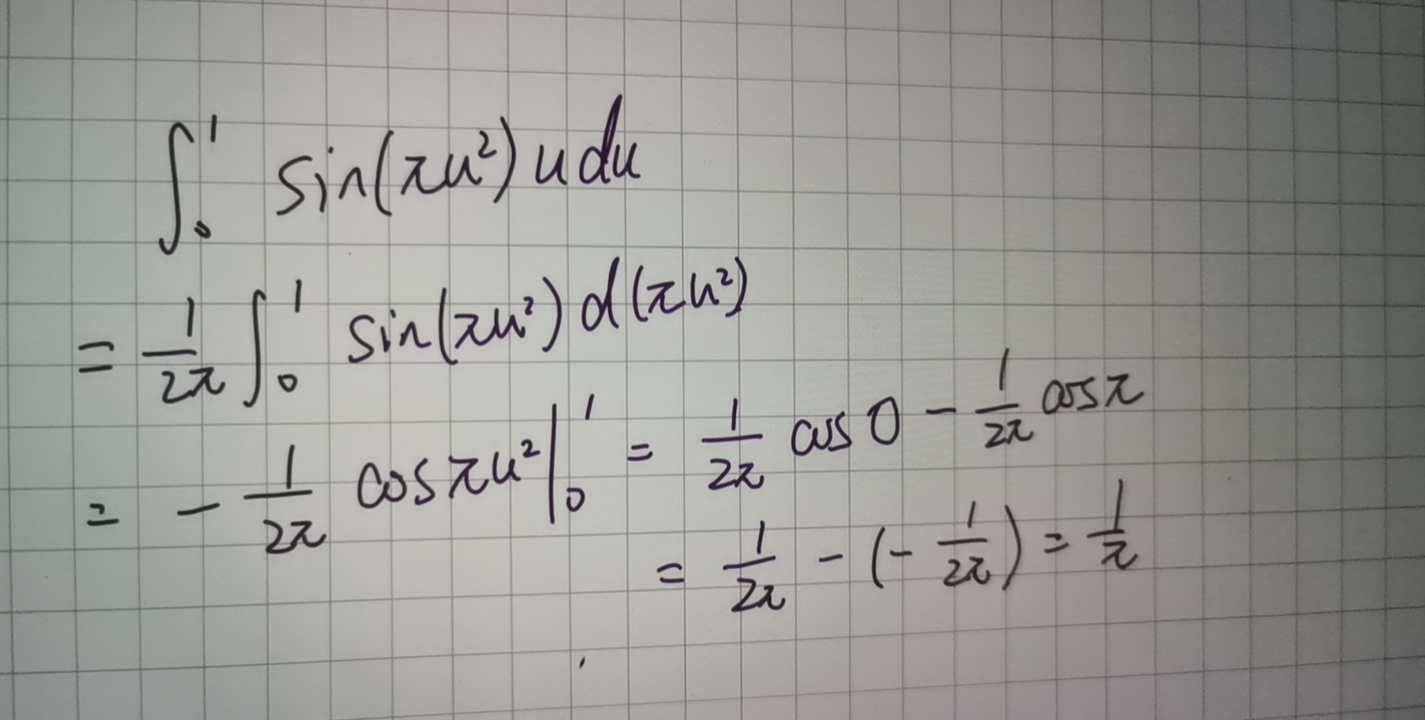 ∫₀¹ sin(πu²) u du
= 1/2π ∫₀¹ sin(πu²) d(πu²)
= - 1/2π cos πu² |₀¹ = 1/2π cos 0 - 1/2π cos π
= 1/2π - (- 1/2π) = 1/π